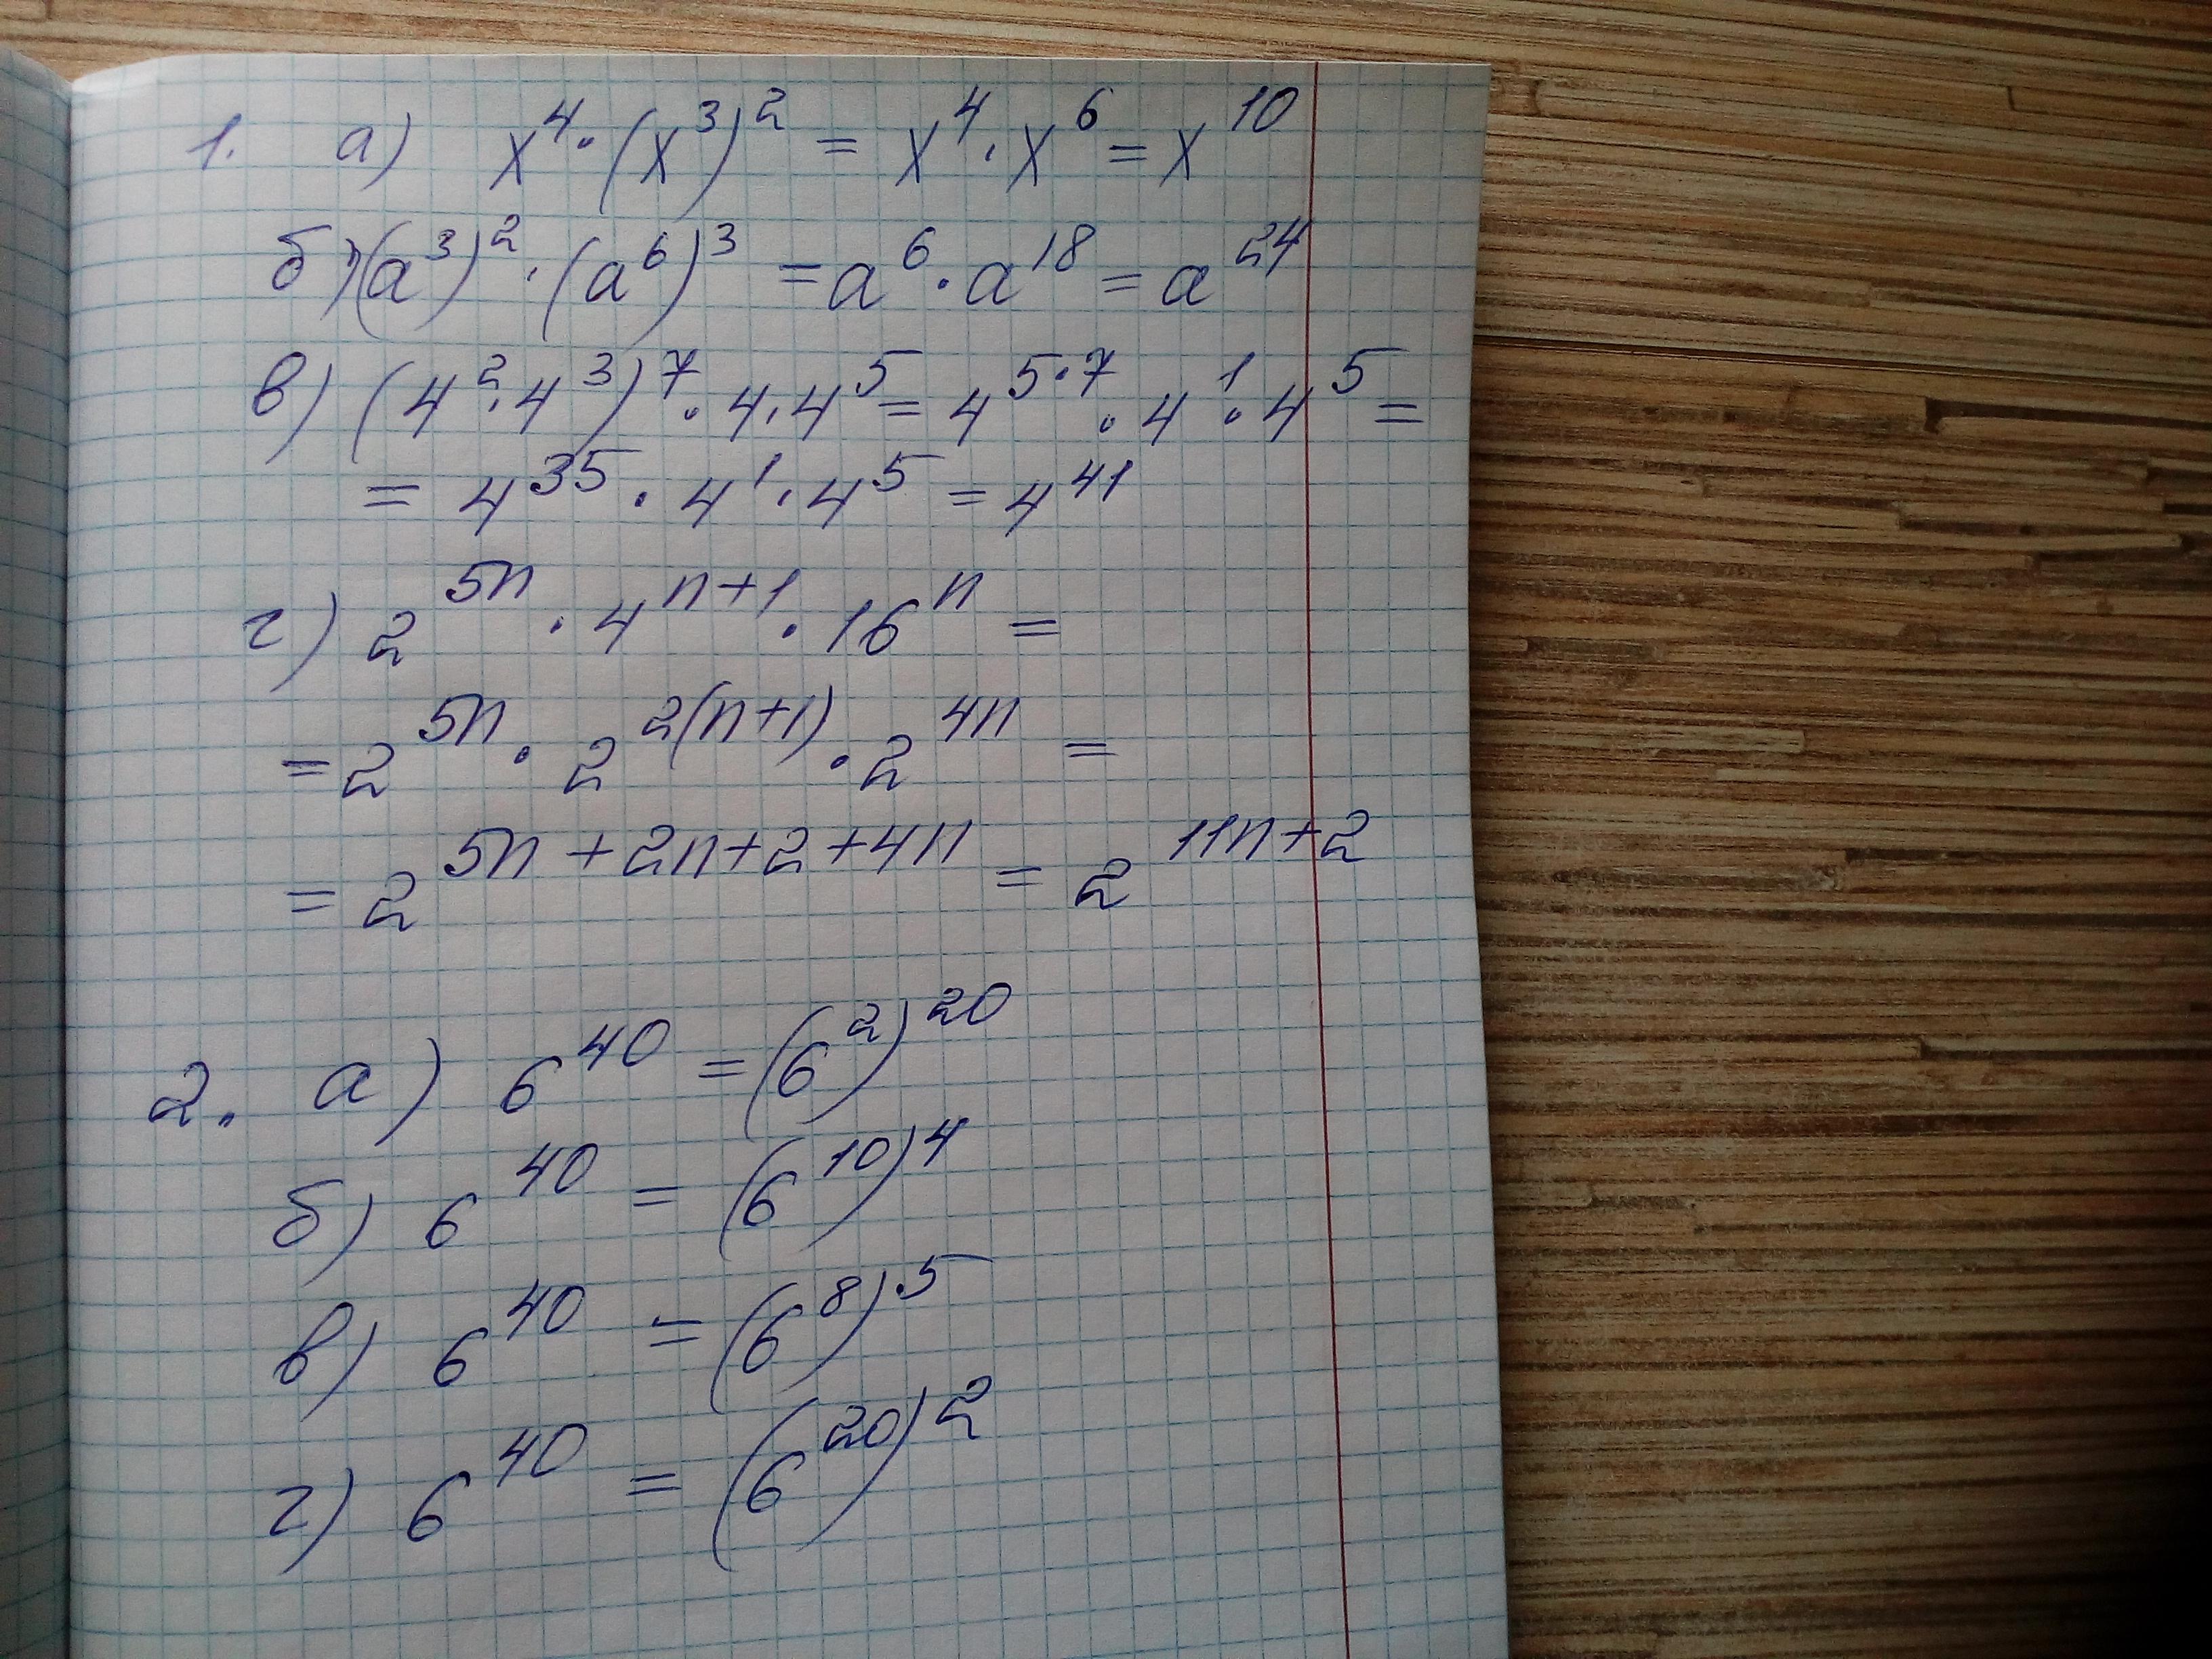 1. а) x⁴·(x³)² = x⁴·x⁶ = x¹⁰
б) (a³)²·(a⁶)³ = a⁶·a¹⁸ = a²⁴
в) (4²·4³)⁷·4·4⁵ = 4⁵·⁷·4¹·4⁵ =
= 4³⁵·4¹·4⁵ = 4⁴¹
г) 2⁵ⁿ·4ⁿ⁺¹·16ⁿ =
= 2⁵ⁿ·2²⁽ⁿ⁺¹⁾·2⁴ⁿ =
= 2⁵ⁿ⁺²ⁿ⁺²⁺⁴ⁿ = 2¹¹ⁿ⁺²
2. а) 6⁴⁰ = (6²)²⁰
б) 6⁴⁰ = (6¹⁰)⁴
в) 6⁴⁰ = (6⁸)⁵
г) 6⁴⁰ = (6²⁰)²